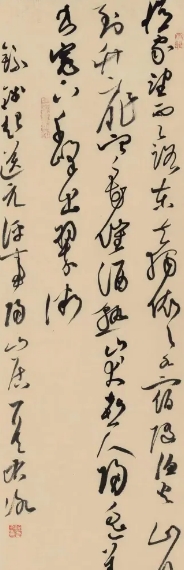 憶家望雲路東去獨依依水宿隨漁火山行
到竹扉寒花催酒熟山犬喜人歸遙羨
書窗下千峰出翠微
錢起送元評事歸山居